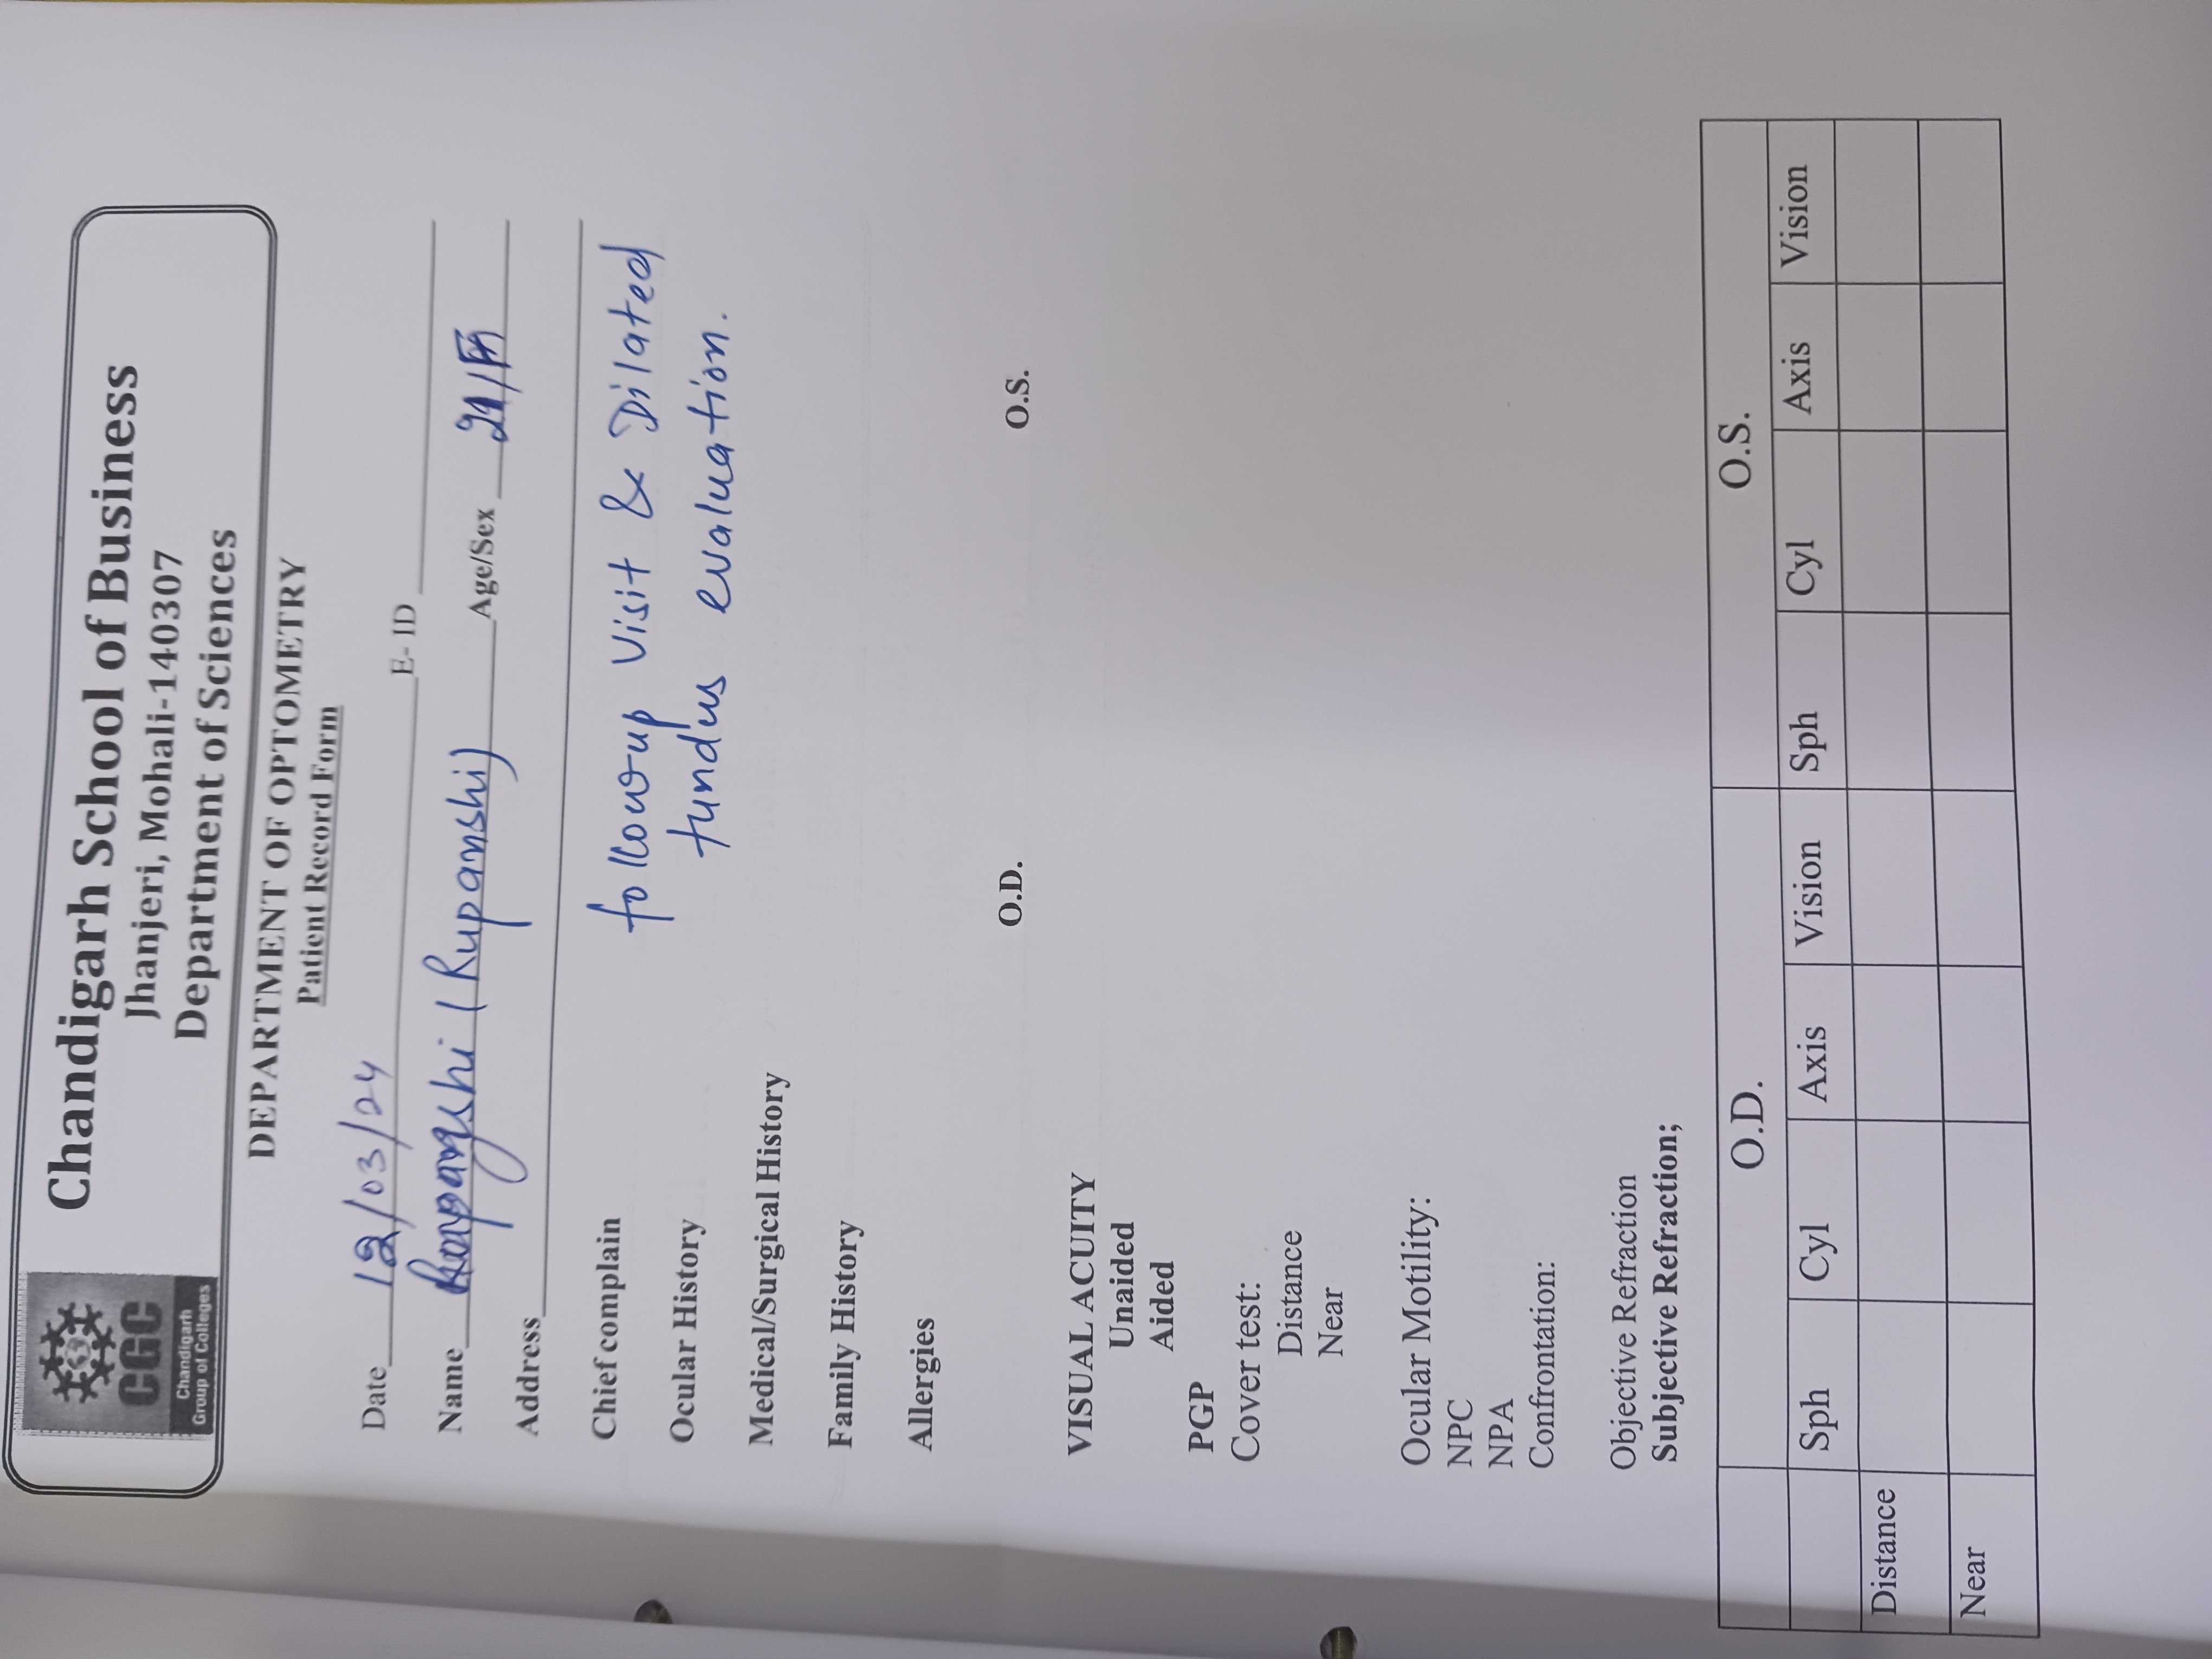 CGC
Chandigarh
Group of Colleges
Chandigarh School of Business
Jhanjeri, Mohali-140307
Department of Sciences
DEPARTMENT OF OPTOMETRY
Patient Record Form
Date 12/03/24 E- ID
Name (Rupanshi) Age/Sex 21/F
Address
Chief complain followup Visit & Dilated
Ocular History fundus evaluation.
Medical/Surgical History
Family History
Allergies
O.D. O.S.
VISUAL ACUITY
Unaided
Aided
PGP
Cover test:
Distance
Near
Ocular Motility:
NPC
NPA
Confrontation:
Objective Refraction
Subjective Refraction;
O.D. O.S.
Sph Cyl Axis Vision Sph Cyl Axis Vision
Distance
Near